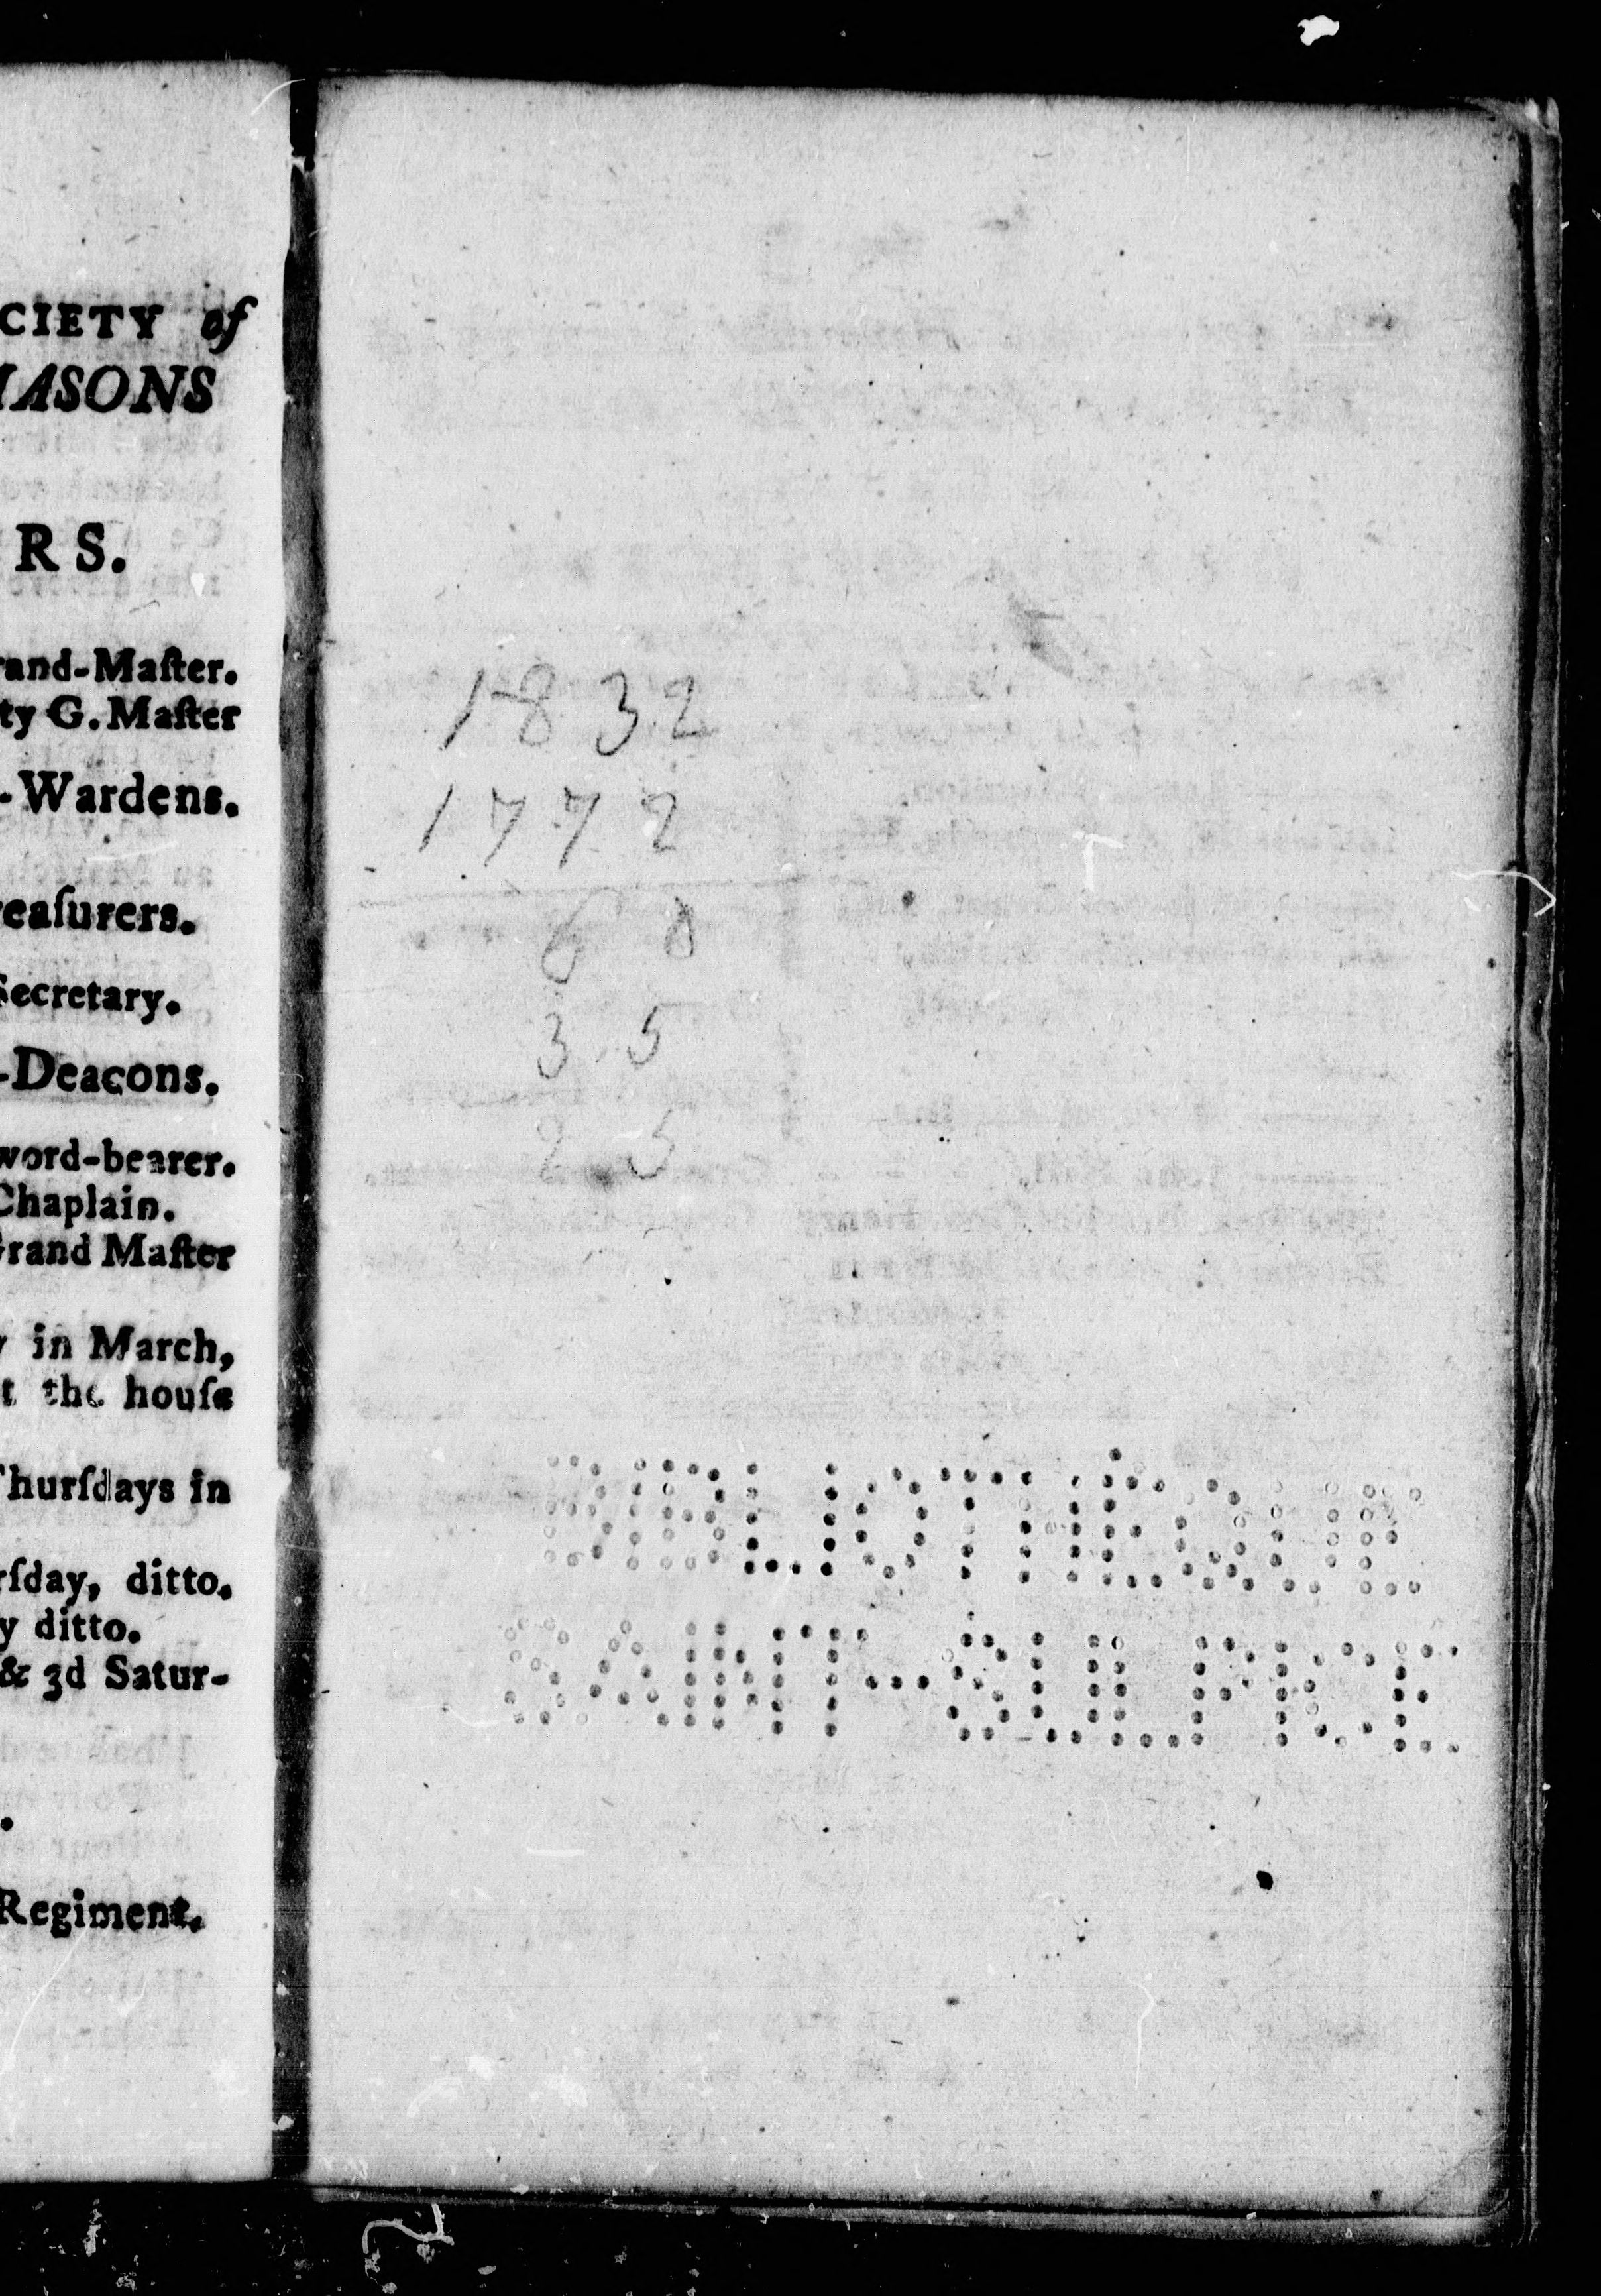 CIETY of
MASONS
RS.
rand-Maſter.
ty G. Maſter
-Wardens.
reaſurers.
Secretary.
-Deacons.
word-bearer.
Chaplain.
Grand Maſter
y in March,
t the houſe
Thurſdays in
rſday, ditto.
y ditto.
& 3d Satur-
Regiment.
1832
1772
60
35
25
BIBLIOTHÈQUE
SAINT-SULPICE